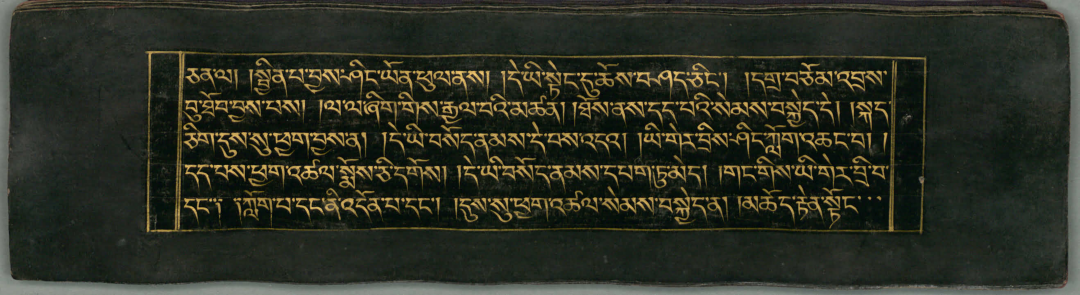 ཅན་ལ། །སྦྱིན་པ་བྱས་ཤིང་ཡོན་ཕུལ་ནས། །དེ་ཡི་སྟེང་དུ་ཆོས་བཤད་ཅིང༌། །དགྲ་བཅོམ་འབྲས་
བུ་ཐོབ་བྱས་པས། །ལ་ལ་ཞིག་གིས་རྒྱལ་བའི་མཚན། །ཐོས་ནས་དད་པའི་སེམས་བསྐྱེད་དེ། །སྐད་
ཅིག་དུས་སུ་ཕྱག་བྱས་ན། །དེ་ཡི་བསོད་ནམས་དེ་བས་འདའ། །ཡི་གེར་བྲིས་ཤིང་ཀློག་འཆང་བ། །
དད་པས་ཕྱག་འཚལ་སྨོས་ཅི་དགོས། །དེ་ཡི་བསོད་ནམས་དཔག་ཏུ་མེད། །གང་གིས་ཡི་གེར་བྲི་བ་
དང་། །ཀློག་པ་དང་ནི་འདོན་པ་དང་། །དུས་སུ་ཕྱག་འཚལ་སེམས་བསྐྱེད་ན། །མཆོད་རྟེན་སྟོང་